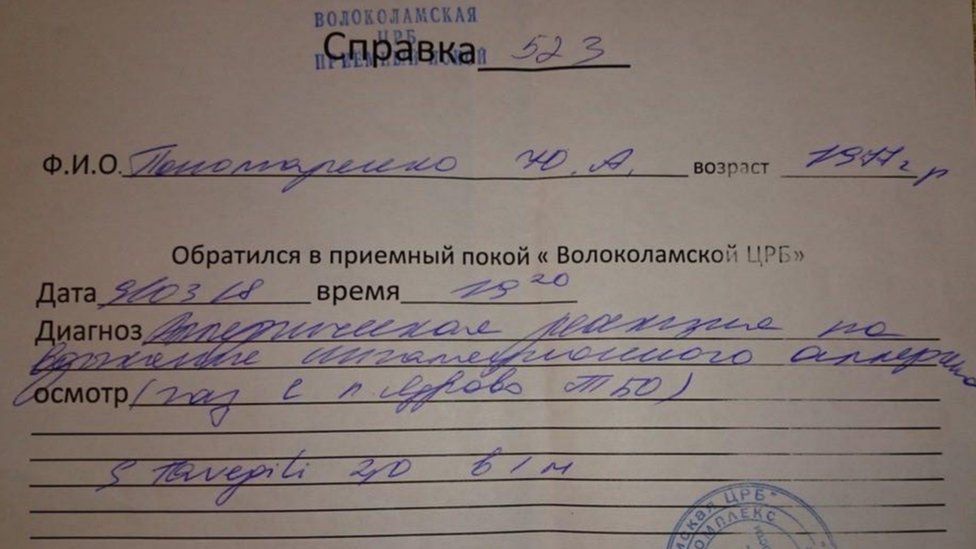 ВОЛОКОЛАМСКАЯ
ЦРБ
ПРИЕМНЫЙ ПОКОЙ
Справка 523
Ф.И.О. Пономаренко Ю. А. возраст 1977 г р
Обратился в приемный покой « Волоколамской ЦРБ»
Дата 9/03 18 время 19 20
Диагноз Аллергическая реакция на
вдыхание ингаляционного аллерген
осмотр (газ с п Ядрово ТБО)
S Tavegili 2,0 в/м
СКАЯ ЦРБ"
КОМПЛЕКС